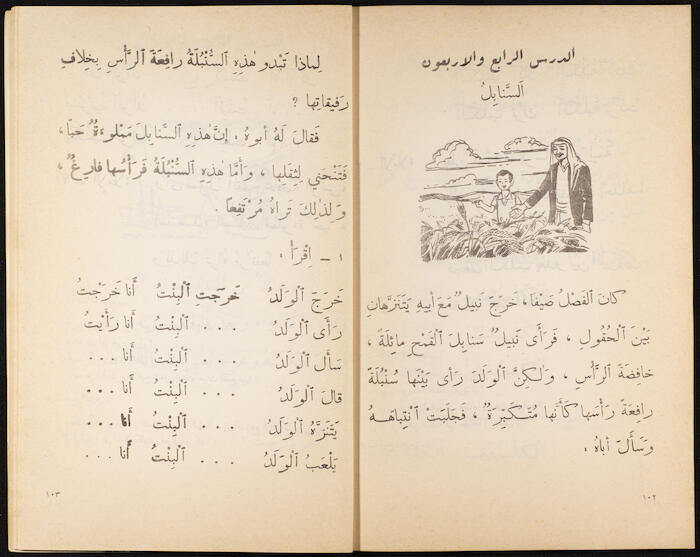 الدرس الرابع والاربعون
اَلسَّنابِلُ
كانَ الْفَصْلُ صَيْفاً، خَرَجَ نَبيلٌ مَعَ أَبيهِ يَتَنَزَّهانِ
بَيْنَ الْحُقولِ ، فَرَأى نَبيلٌ سَنابِلَ الْقَمْحِ مائِلَةً ،
خافِضَةَ الرَّأْسِ ، وَلكِنَّ الْوَلَدَ رَأى بَيْنَها سُنْبُلَةً
رافِعَةً رَأْسَها كَأَنَّها مُتَكَبِّرَةٌ ، فَجَلَبَتْ انْتِباهَهُ
وَسَأَلَ أَباهُ :
١٠٢
لِماذا تَبْدو هٰذِهِ السُّنْبُلَةُ رافِعَةَ الرَّأْسِ بِخِلافِ
رَفيقاتِها ؟
فَقالَ لَهُ أَبوهُ : إِنَّ هٰذِهِ السَّنابِلَ مَمْلوءَةٌ حَبّاً،
فَتَنْحَني لِثِقَلِها ، وَأَمَّا هٰذِهِ السُّنْبُلَةُ فَرَأْسُها فارِغٌ ،
وَلِذٰلِكَ تَراهُ مُرْتَفِعاً .
١ - اِقْرَأْ :
خَرَجَ الْوَلَدُ خَرَجَتِ الْبِنْتُ أَنا خَرَجْتُ
رَأَى الْوَلَدُ . . . الْبِنْتُ أَنا رَأَيْتُ
سَأَلَ الْوَلَدُ . . . الْبِنْتُ أَنا . . .
قالَ الْوَلَدُ . . . الْبِنْتُ أَنا . . .
يَتَنَزَّهُ الْوَلَدُ . . . الْبِنْتُ أَنا . . .
يَلْعَبُ الْوَلَدُ . . . الْبِنْتُ أَنا . . .
١٠٣